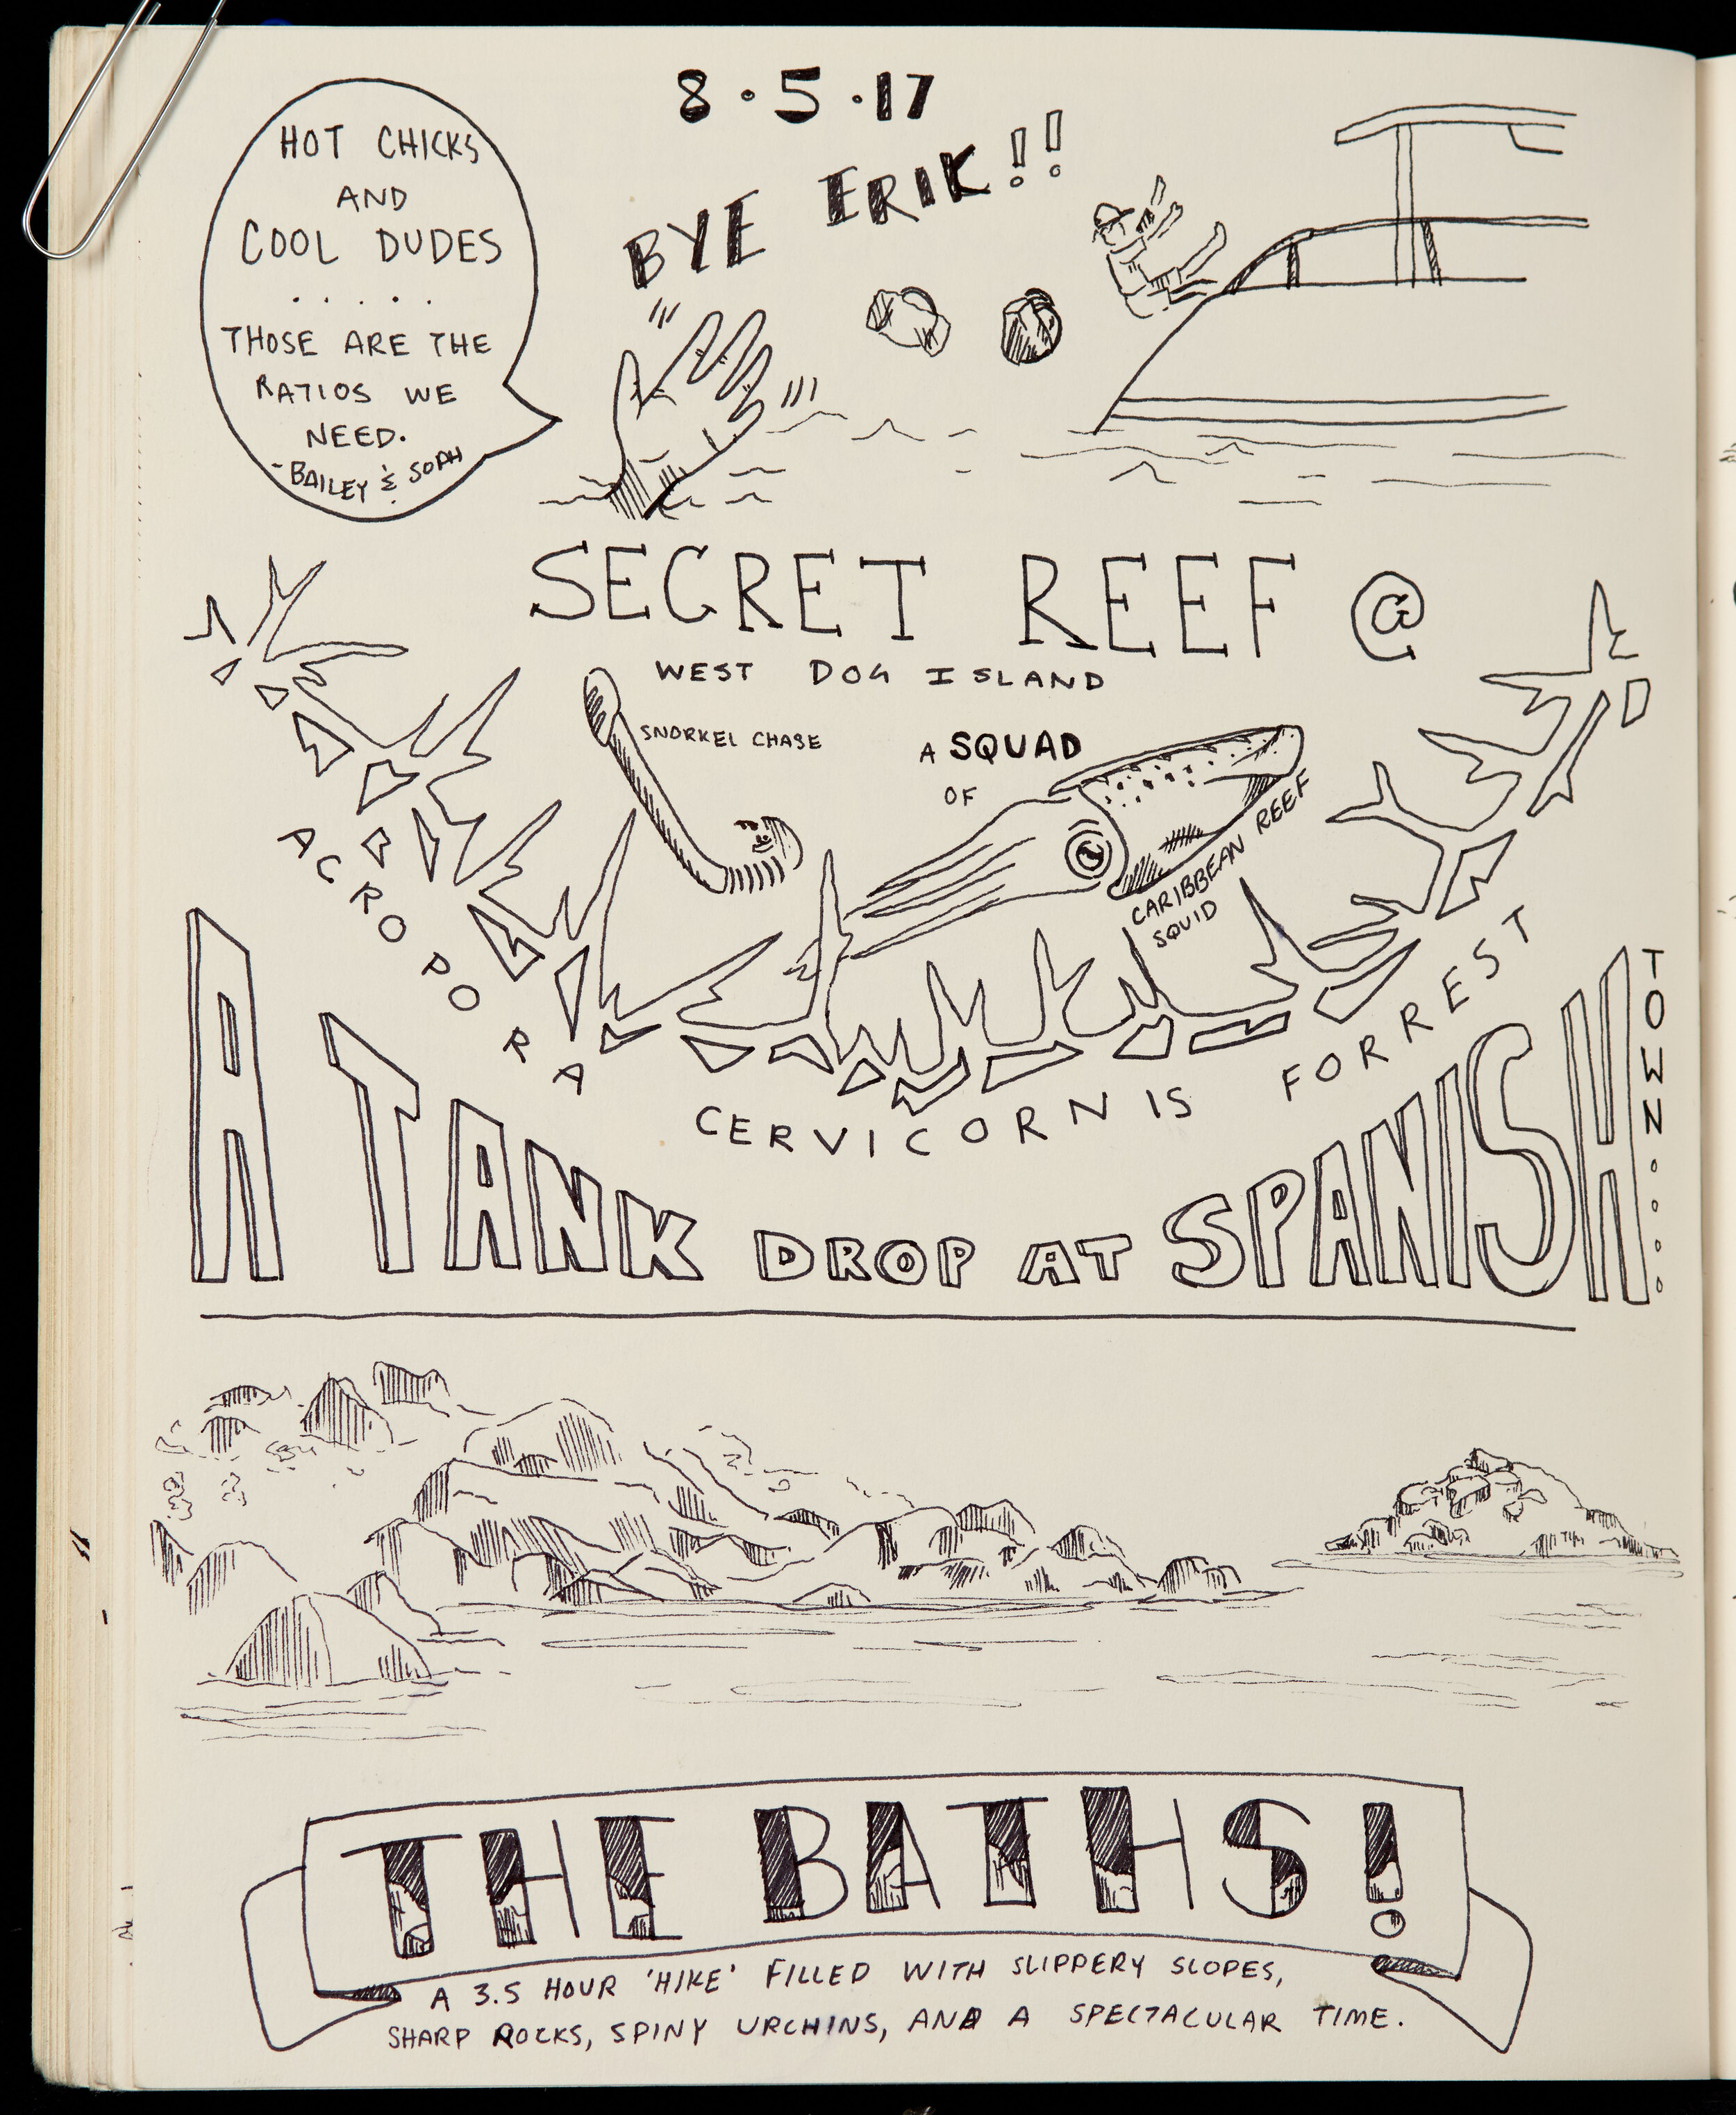 8·5·17
HOT CHICKS
AND
COOL DUDES
.....
THOSE ARE THE
RATIOS WE
NEED.
-BAILEY & SOPH
BYE ERIK!!
SECRET REEF @
WEST DOG ISLAND
SNORKEL CHASE
A SQUAD
OF
CARIBBEAN REEF
SQUID
ACROPORA CERVICORNIS FORREST
A TANK DROP AT SPANISH
TOWN....
THE BATHS!
A 3.5 HOUR 'HIKE' FILLED WITH SLIPPERY SLOPES,
SHARP ROCKS, SPINY URCHINS, AND A SPECTACULAR TIME.